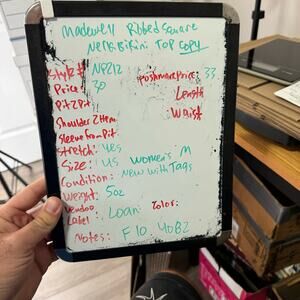 Madewell Ribbed Square
Neck Bikini Top Copy
Style # NP212
Price: 30 Poshmark Price: 33
Pit 2 Pit Length
Shoulder 2 Hem : Waist
Sleeve From Pit
Stretch: Yes
Size: US Women's M
Condition: New with Tags
Weight: 5oz
Vendoo Label: Loan: Color:
Notes: F10.40B2